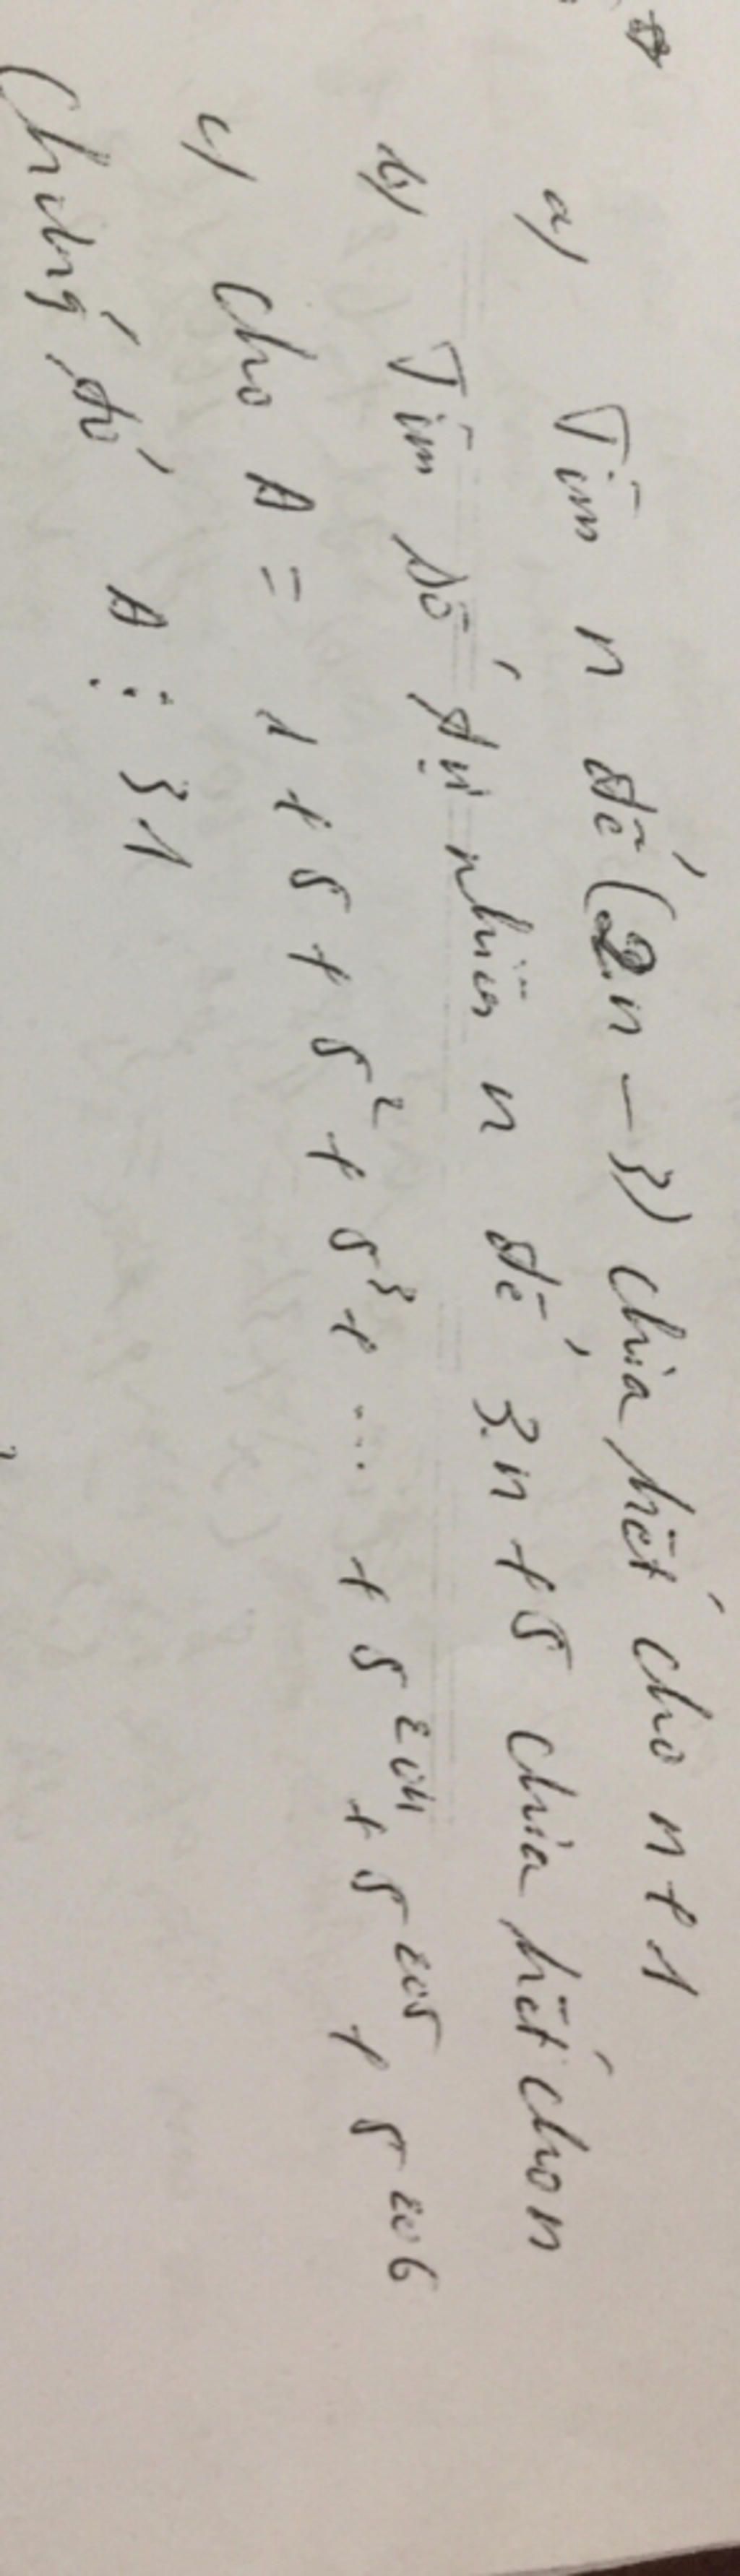 a) Tìm n để (2n - 3) chia hết cho n + 1
b) Tìm số tự nhiên n để 3.n + 5 chia hết cho n
c) Cho A = 1 + 5 + 5² + 5³ + ... + 5²⁰⁴ + 5²⁰⁵ + 5²⁰⁶
Chứng tỏ A ⋮ 31